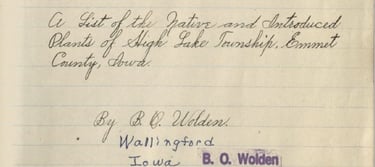 A List of the Native and Introduced
Plants of High Lake Township, Emmet
County, Iowa.
By B. O. Wolden.
Wallingford
Iowa B. O. Wolden